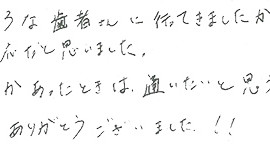 うな歯者さんに行ってきましたが
応だと思いました。
かあったときは、通いたいと思う
ありがとうございました!!